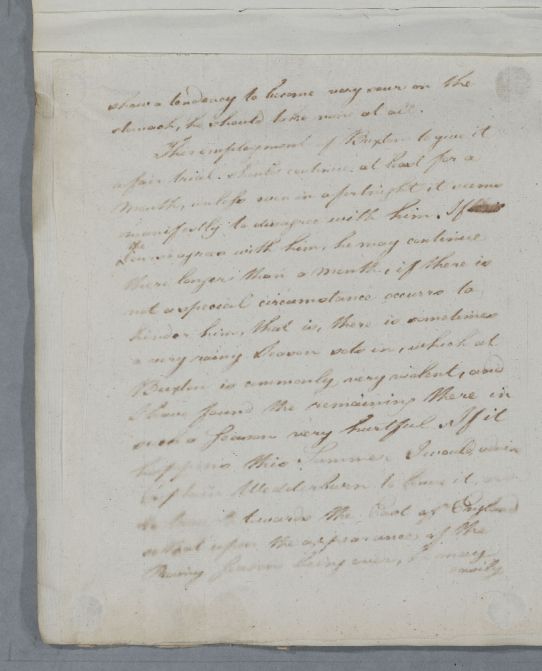 shew a tendency to become very sour on the
stomach, he should take none at all.
The employment of Buxton to give it
a fair trial should continue at least for a
month, unless even in a fortnight it seems
manifestly to disagree with him. If
the
agree with him, he may continue
there longer than a month, if there is
not a special circumstance occurrs to
hinder him, that is, there is sometimes
a very rainy Season sets in, which at
Buxton is commonly very violent, and
I have found the remaining there in
such a Season very hurtful. If it
happens this Summer I would advise
Captain Wedderburn to leave it, and
towards the East of England
upon the appearance of the
Rainy Season being over, he may
easily